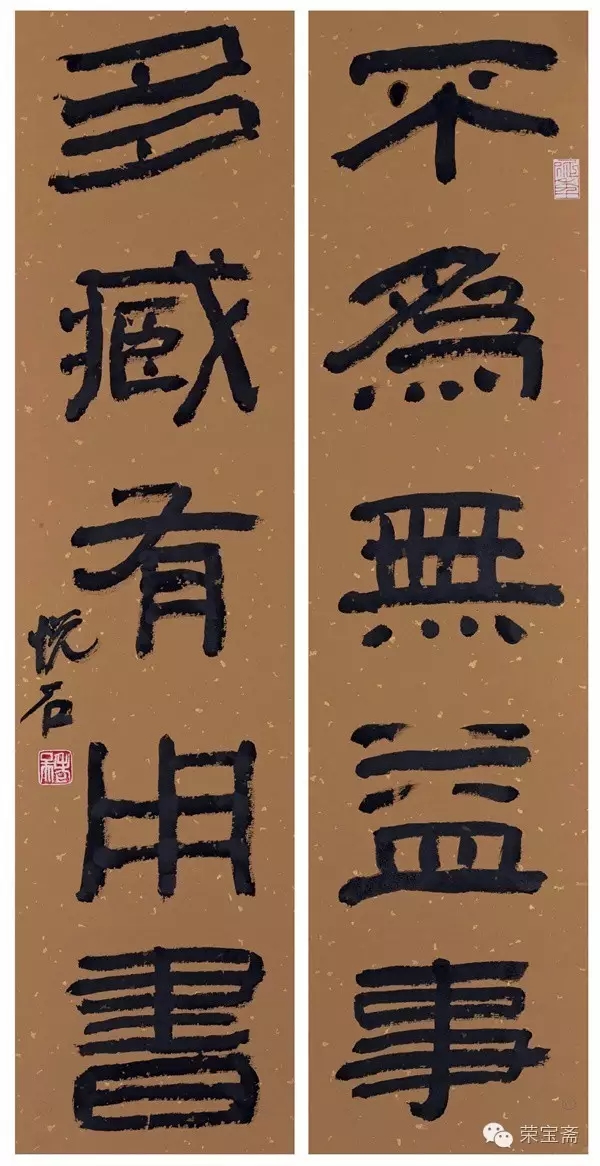 不為無益事
多臧有用書
悦石
荣宝斋